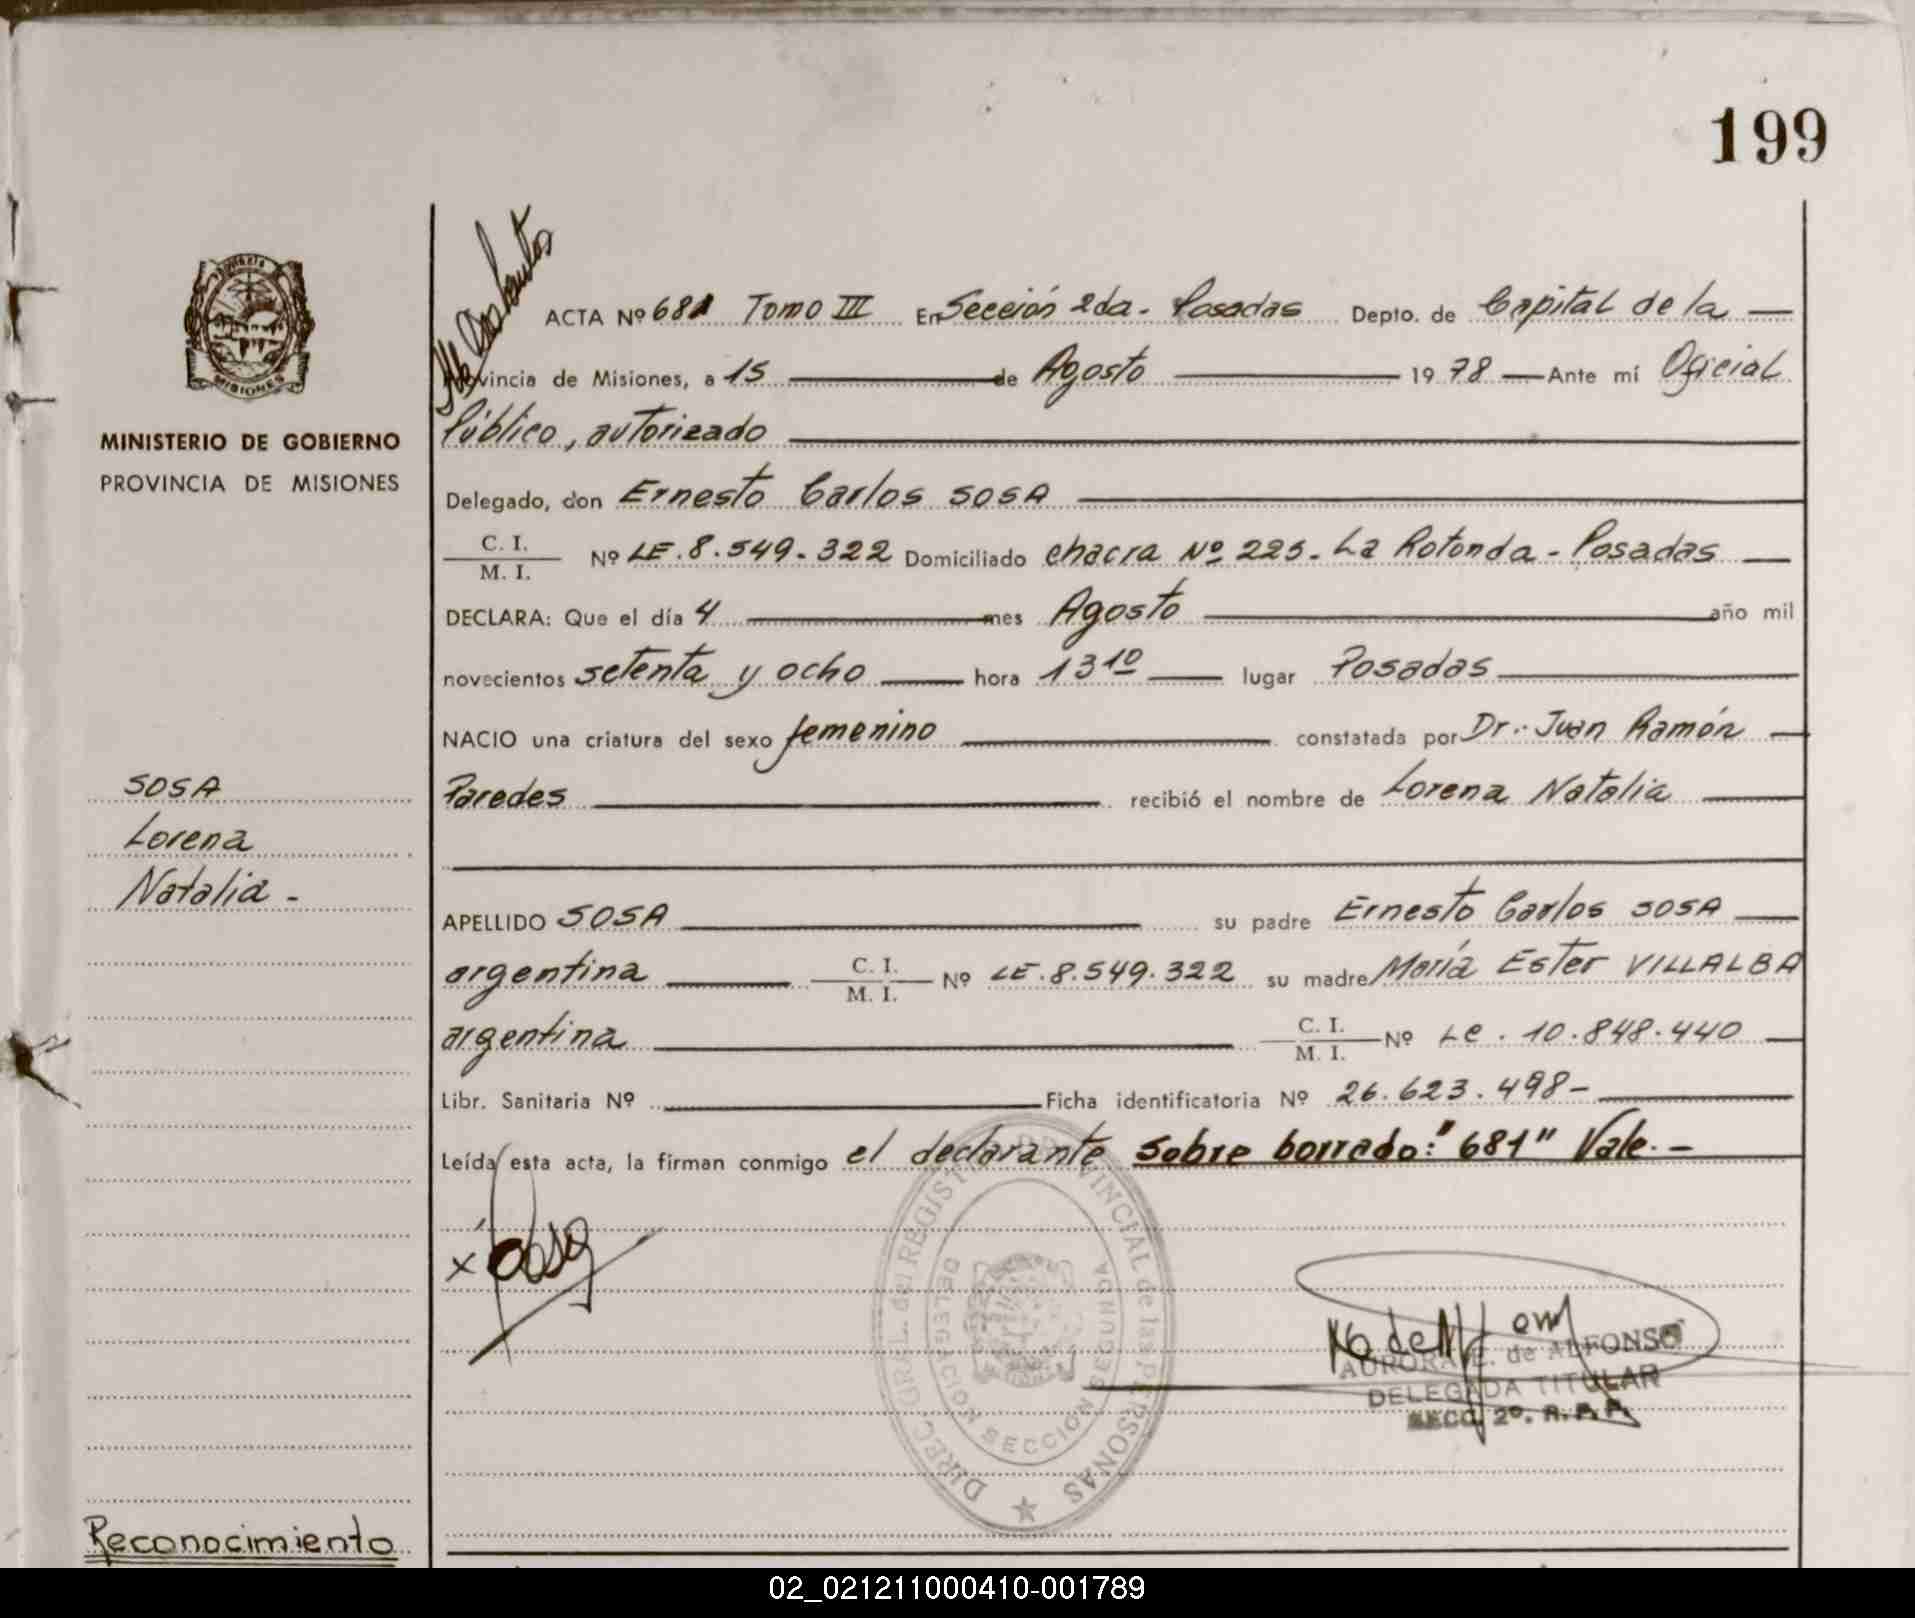 199
MINISTERIO DE GOBIERNO
PROVINCIA DE MISIONES
SOSA
Lorena
Natalia -
Reconocimiento
ACTA Nº 681 Tomo III En Sección 2da. Posadas Depto. de Capital de la
Provincia de Misiones, a 15 de Agosto 1978 Ante mí Oficial
Público, autorizado
Delegado, don Ernesto Carlos SOSA
C. I.
M. I. Nº LE. 8.549.322 Domiciliado chacra Nº 225. La Rotonda - Posadas
DECLARA: Que el día 4 mes Agosto año mil
novecientos setenta y ocho hora 13 10 lugar Posadas
NACIO una criatura del sexo femenino constatada por Dr. Juan Ramón
Paredes recibió el nombre de Lorena Natalia
APELLIDO SOSA su padre Ernesto Carlos SOSA
argentina C. I.
M. I. Nº LE. 8.549.322 su madre María Ester VILLALBA
argentina C. I.
M. I. Nº LC. 10.848.440
Libr. Sanitaria Nº Ficha identificatoria Nº 26.623.498-
Leída esta acta, la firman conmigo el declarante sobre borrado: "681" Vale. -
x Sosa
DIREC. GRAL. del REGISTRO PROVINCIAL de las PERSONAS
DELEGACION SECCION SEGUNDA
MISIONES
AURORA E. de ALFONSO
DELEGADA TITULAR
SECC. 2º. R. P. P.
02_021211000410-001789